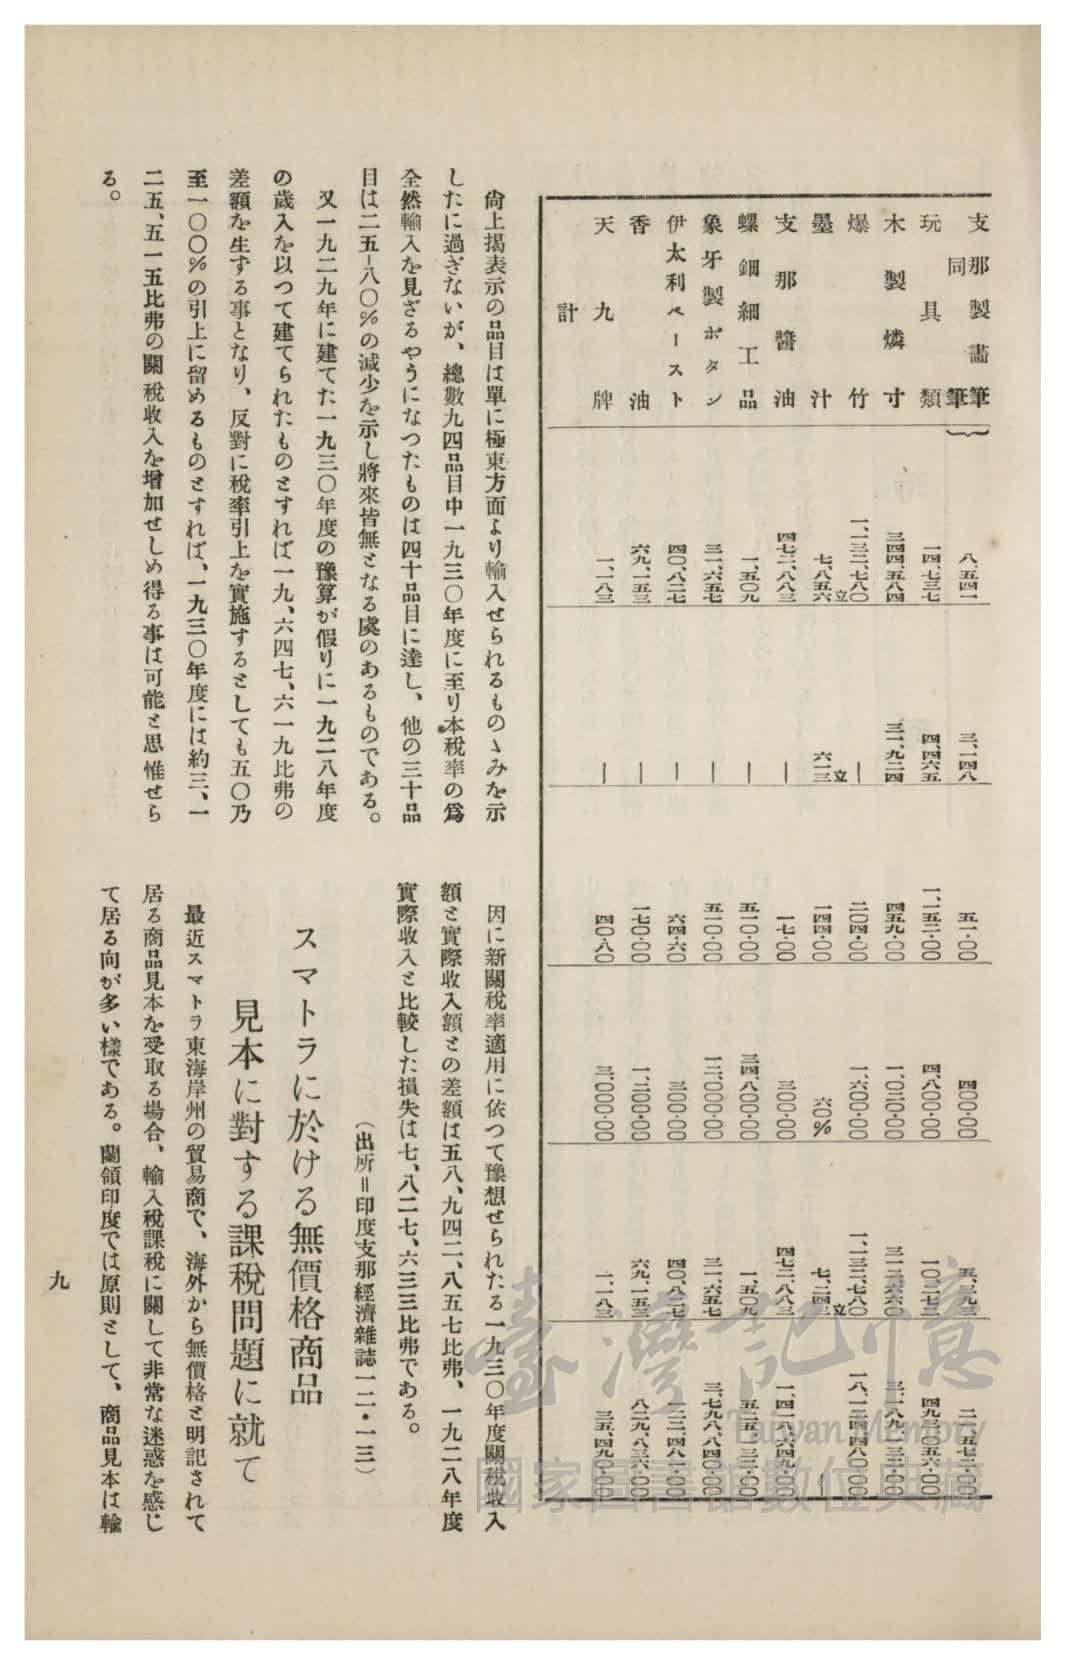 支那製畵筆
同筆
八、五四一
三、一四八
五一・〇〇
四〇〇・〇〇
五、三九三
玩具類
一四、七三七
四、四六五
一、一五二・〇〇
四、八〇〇・〇〇
一〇、二七二
木製燐寸
三四四、五八四
三一、九二四
四五九・〇〇
一、〇二〇・〇〇
三一二、六六〇
爆竹
一、一三二、七八〇
—
二〇四・〇〇
一、六〇〇・〇〇
一、一三二、七八〇
墨汁
立
七、八五六
立
六一三
一四四・〇〇
六〇%
立
七、二四三
—
支那醬油
四七二、八八三
—
一七・〇〇
三〇〇・〇〇
四七二、八八三
螺鈿細工品
一、五〇九
—
五一〇・〇〇
三四、八〇〇・〇〇
一、五〇九
象牙製ボタン
三一、六五七
—
五一〇・〇〇
一二、〇〇〇・〇〇
三一、六五七
伊太利ペースト
四〇、八二七
—
六四・六〇
三〇〇・〇〇
四〇、八二七
香油
六九、一五三
—
一七〇・〇〇
一、二〇〇・〇〇
六九、一五三
八二九、八三六・〇〇
天九牌
一、一八三
—
四〇・八〇
三、〇〇〇・〇〇
一、一八三
三五、四九〇・〇〇
計
尙上揭表示の品目は單に極東方面より輸入せられるものゝみを示
したに過ぎないが、總數九四品目中一九三〇年度に至り本稅率の爲
全然輸入を見ざるやうになつたものは四十品目に達し、他の三十品
目は二五—八〇%の減少を示し將來皆無となる虞のあるものである。
又一九二九年に建てた一九三〇年度の豫算が假りに一九二八年度
の歲入を以つて建てられたものとすれば一九、六四七、六一九比弗の
差額を生ずる事となり、反對に稅率引上を實施するとしても五〇乃
至一〇〇%の引上に留めるものとすれば、一九三〇年度には約三、一
二五、五一五比弗の關稅收入を增加せしめ得る事は可能と思惟せら
る。
因に新關稅率適用に依つて豫想せられたる一九三〇年度關稅收入
額と實際收入額との差額は五八、九四二、八五七比弗、一九二八年度
實際收入と比較した損失は七、八二七、六三三比弗である。
（出所＝印度支那經濟雜誌一二・一三）
スマトラに於ける無價格商品
見本に對する課稅問題に就て
最近スマトラ東海岸州の貿易商で、海外から無價格と明記されて
居る商品見本を受取る場合、輸入稅課稅に關して非常な迷惑を感じ
て居る向が多い樣である。蘭領印度では原則として、商品見本は輸
九
臺灣記憶
Taiwan Memory
國家圖書館數位典藏